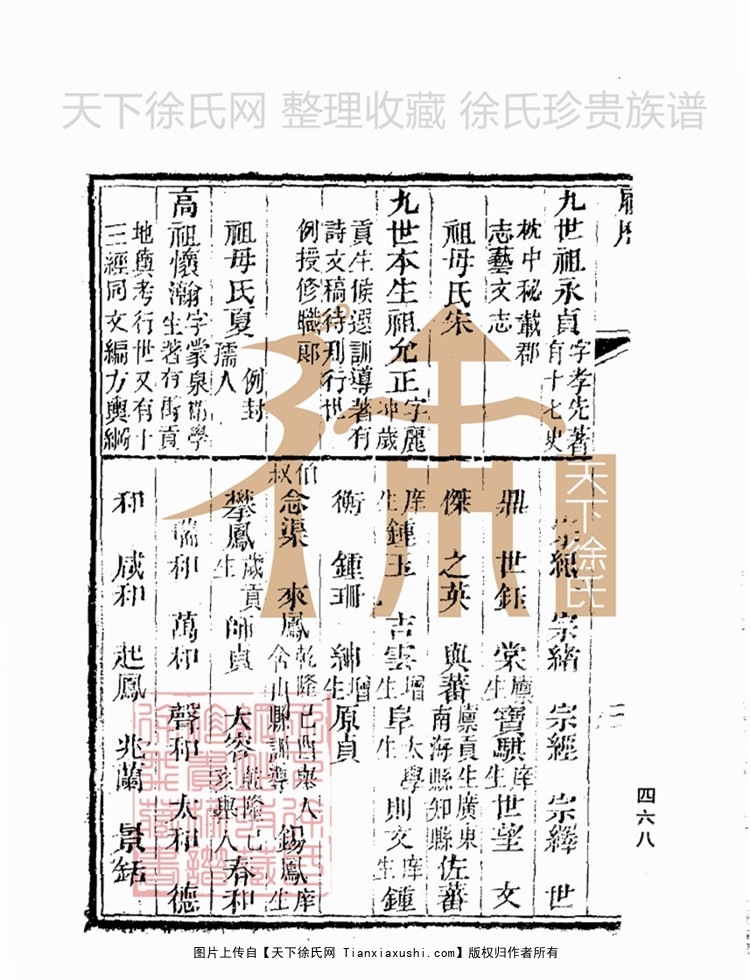 天下徐氏网 整理收藏 徐氏珍贵族谱
九世祖永貞字孝先著有十七史
枕中秘載郡
志藝文志
祖母氏宋
九世本生祖允正字麗冲歲
貢生候選訓導著有
詩文稿待刋行世
例授修職郎
祖母氏夏例封孺人
高祖懷瀚字蒙泉
生著有禹貢
地輿考行世又有十
三經同文編方輿綱
宗緒 宗經 宗繹 世
鼎 世鈺 棠廪生 寶騏庠生 世望 文
傑 之英 與蕃廪貢生廣東南海縣知縣 佐蕃
庠生 鍾玉 吉雲增生 阜太學生 則文庠生 鍾
衡 鍾珊 紳增生 原貞
伯叔
念渠 來鳳乾隆己酉舉人含山縣訓導 錫鳳庠生
攀鳳歲貢生 師貞 大容乾隆己亥舉人 春和
和 萬和 聲和 太和 德
和 咸和 起鳳 兆蘭 景
四六八
天下徐氏
图片上传自【天下徐氏网 Tianxiaxushi.com】版权归作者所有